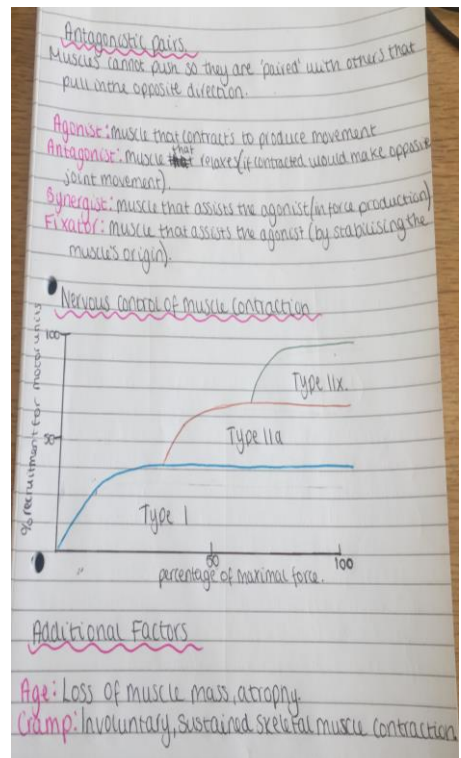 Antagonistic pairs.
Muscles cannot push so they are 'paired' with others that
pull in the opposite direction.
Agonist: muscle that contracts to produce movement
Antagonist: muscle that relaxes (if contracted would make opposite
joint movement).
Synergist: muscle that assists the agonist (in force production)
Fixator: muscle that assists the agonist (by stabilising the
muscle's origin).
Nervous control of muscle contraction
% recruitment for motor units
100
50
Type IIx.
Type IIa
Type I
50
100
percentage of maximal force.
Additional Factors
Age: Loss of muscle mass, atrophy.
Cramp: Involuntary, sustained skeletal muscle contraction